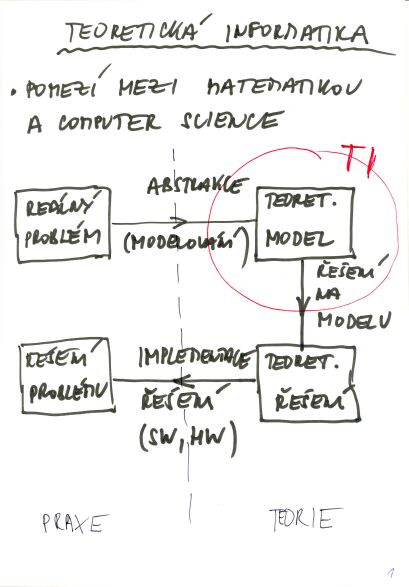 TEORETICKÁ INFORMATIKA
• POMEZÍ MEZI MATEMATIKOU
A COMPUTER SCIENCE
TI
ABSTRAKCE
REÁLNÝ
PROBLÉM
(MODELOVÁNÍ)
TEORET.
MODEL
ŘEŠENÍ
NA
MODELU
ŘEŠENÍ
PROBLÉMU
IMPLEMENTACE
ŘEŠENÍ
(SW, HW)
TEORET.
ŘEŠENÍ
PRAXE
TEORIE
1